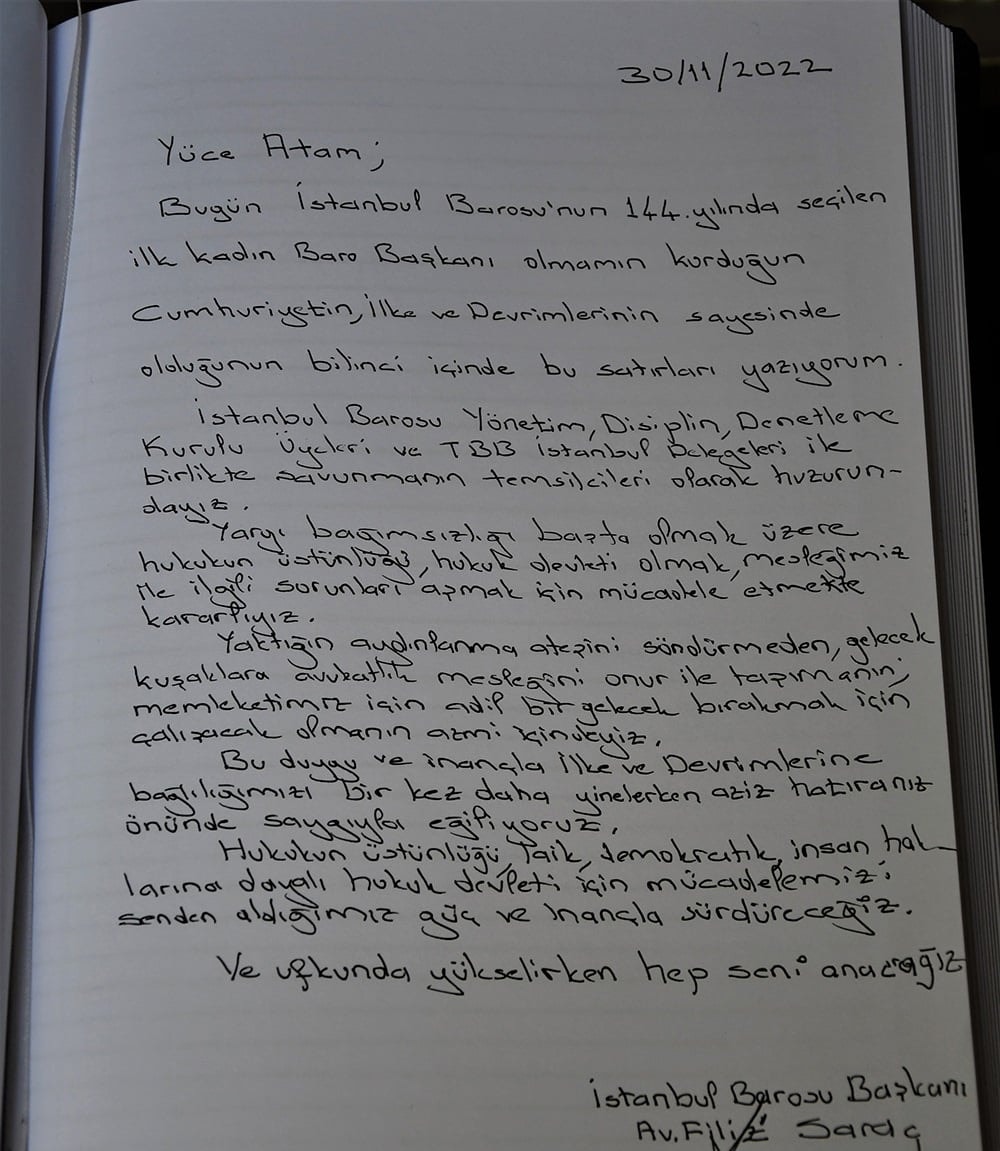 30/11/2022
Yüce Atam;
Bugün İstanbul Barosu'nun 144. yılında seçilen
ilk kadın Baro Başkanı olmamın kurduğun
Cumhuriyetin, İlke ve Devrimlerinin sayesinde
olduğunun bilinci içinde bu satırları yazıyorum.
İstanbul Barosu Yönetim, Disiplin, Denetleme
Kurulu Üyeleri ve TBB İstanbul Delegeleri ile
birlikte savunmanın temsilcileri olarak huzurun-
dayız.
Yargı bağımsızlığı başta olmak üzere
hukukun üstünlüğü, hukuk devleti olmak, mesleğimiz
ile ilgili sorunları aşmak için mücadele etmekte
kararlıyız.
Yaktığın aydınlanma ateşini söndürmeden, gelecek
kuşaklara avukatlık mesleğini onur ile taşımanın,
memleketimiz için adil bir gelecek bırakmak için
çalışacak olmanın azmi içindeyiz.
Bu duygu ve inançla İlke ve Devrimlerine
bağlılığımızı bir kez daha yinelerken aziz hatıranız
önünde saygıyla eğiliyoruz.
Hukukun üstünlüğü, laik, demokratik, insan hak
larına dayalı hukuk devleti için mücadelemizi
senden aldığımız güç ve inançla sürdüreceğiz.
Ve ufkunda yükselirken hep seni anacağız
İstanbul Barosu Başkanı
Av. Filiz Saraç